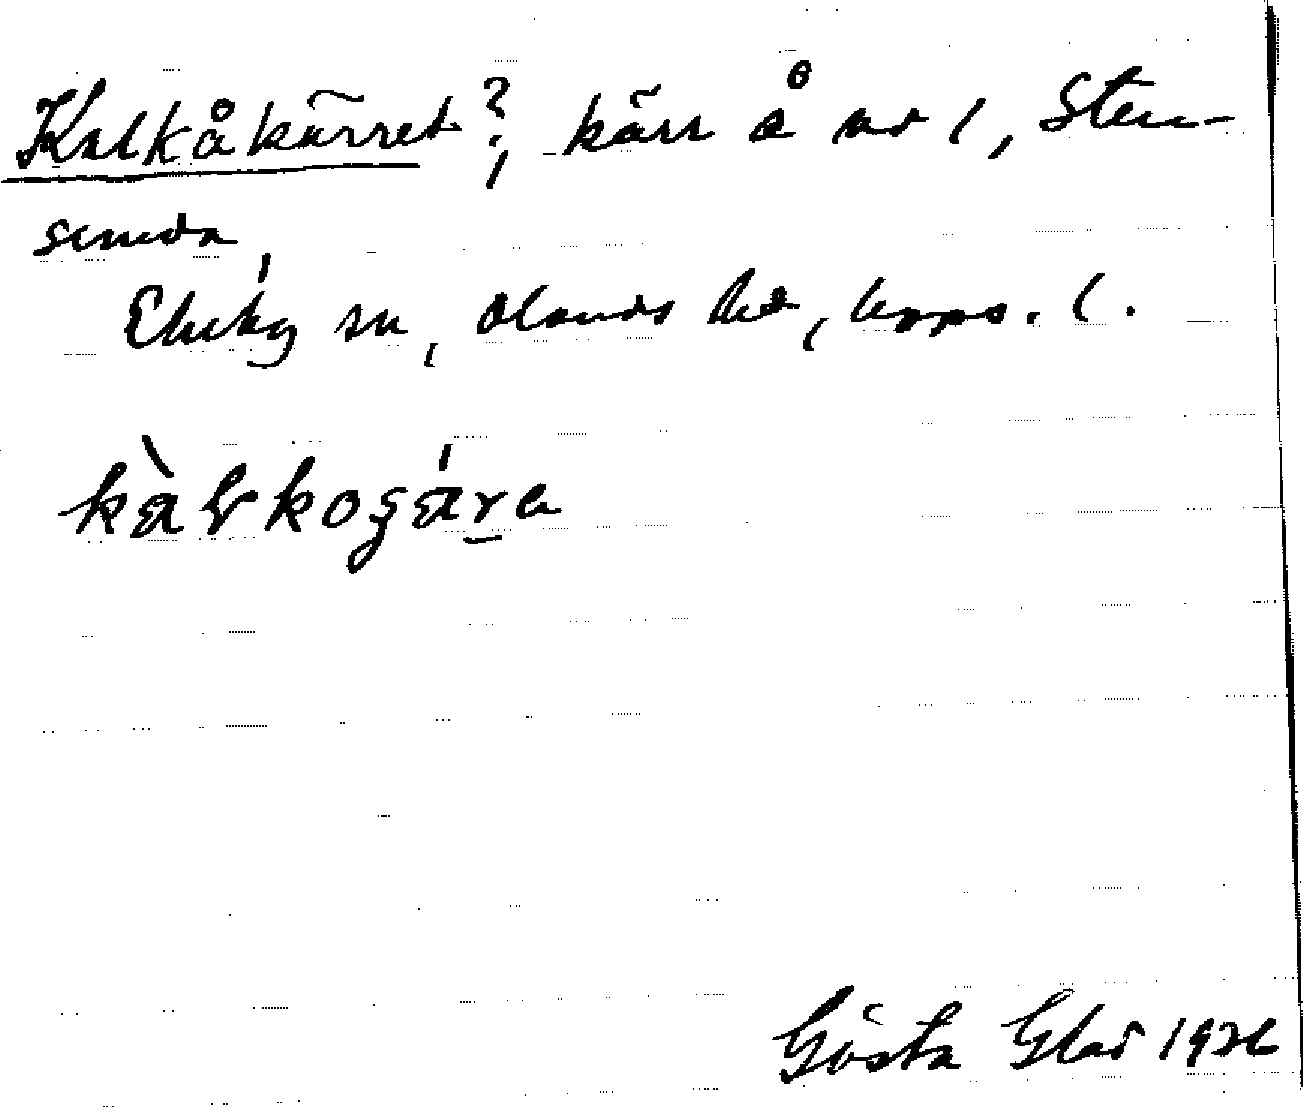 Kalkåkärret?, kärr å nr 1, Sten-
sunda
Ekeby sn, Olands hd, Upps. l.
kàɫkoʂä́ra
Gösta Glad 1926